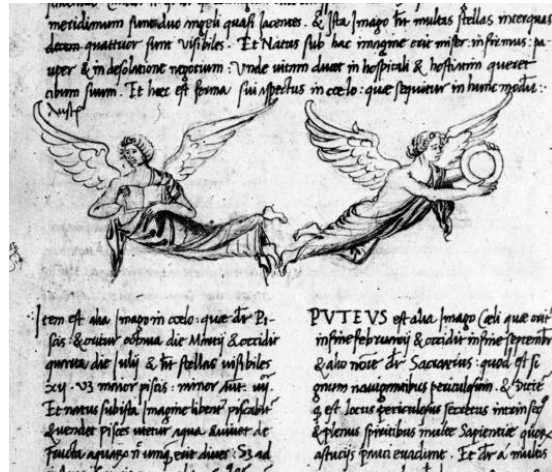 metidimum sunt duo angeli quasi jacentes. & Ista Imago hñt multas stellas inter quas
decem quattuor sunt visibiles. Et Natus sub hac imagine erit miser: infirmus: pa-
uper & in desolatione nepotum: Unde vitam ducet in hospitali & hostiatim queret
cibum suum. Et haec est forma sui aspectus in coelo: quae sequitur in hunc modũ:
Auster
Item est alia Imago in coelo: quae dr̃ Pi-
scis: & oritur octava die Martij & occidit
quinta die Iulij & hñt stellas visibiles
xij. vz maior piscis: minor aut: iiij.
Et natus sub ista Imagine libent piscabit
& vendet pisces utetur aqua & vivet de
PUTEUS est alia Imago Caeli quae orit
in fine februarij & occidit in fine septembr
& alio noie dr̃ Sacrarius: quod est si
gnum navigantibus periculosum. &
q̃ est locus periculosus secretus intrinsec
& plenus spiritibus multe Sapientiae
astutijs pauci evadunt. Et dr̃ a multis